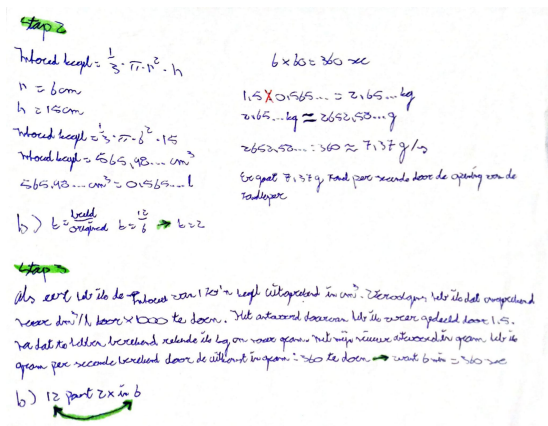 Stap 2
Inhoud kegel = 1/3 · π · r² · h
r = 6cm
h = 15cm
Inhoud kegel = 1/3 · π · 6² · 15
Inhoud kegel = 565,48... cm³
565,48... cm³ = 0,565... l
b) k = beeld/origineel k = 12/6 → k=2
6 x 60 = 360 sec
1,5 X 0,565... = 2,65... kg
2,65... kg ≈ 2652,58... g
2652,58... : 360 ≈ 7,37 g/s
Er gaat 7,37g zand per seconde door de opening van de
zandloper
Stap 3
Als eerst heb ik de inhoud van 1 zo'n kegel uitgerekend in cm³. Vervolgens heb ik dat omgerekend
naar dm³/l door x1000 te doen. Het antwoord daarvan heb ik weer gedeeld door 1.5.
na dat te hebben berekend rekende ik kg om naar gram. met mijn nieuwe antwoord in gram heb ik
gram per seconde berekend door de uitkomst in gram : 360 te doen → want 6 min = 360 sec
b) 12 past 2x in 6